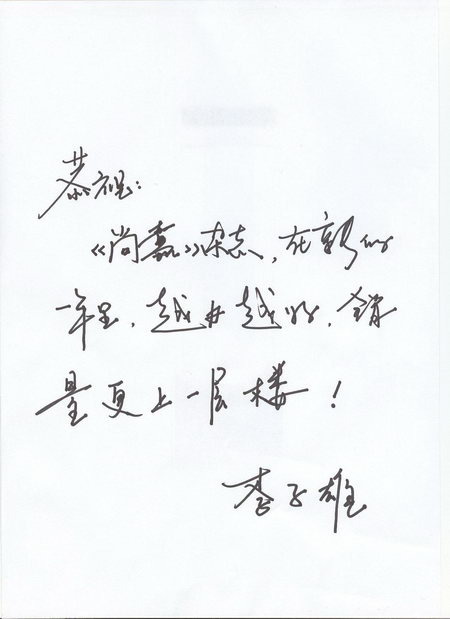 恭祝:
《尚嘉》杂志,在新的
一年里,越办越好,销
量更上一层楼!
李子雄